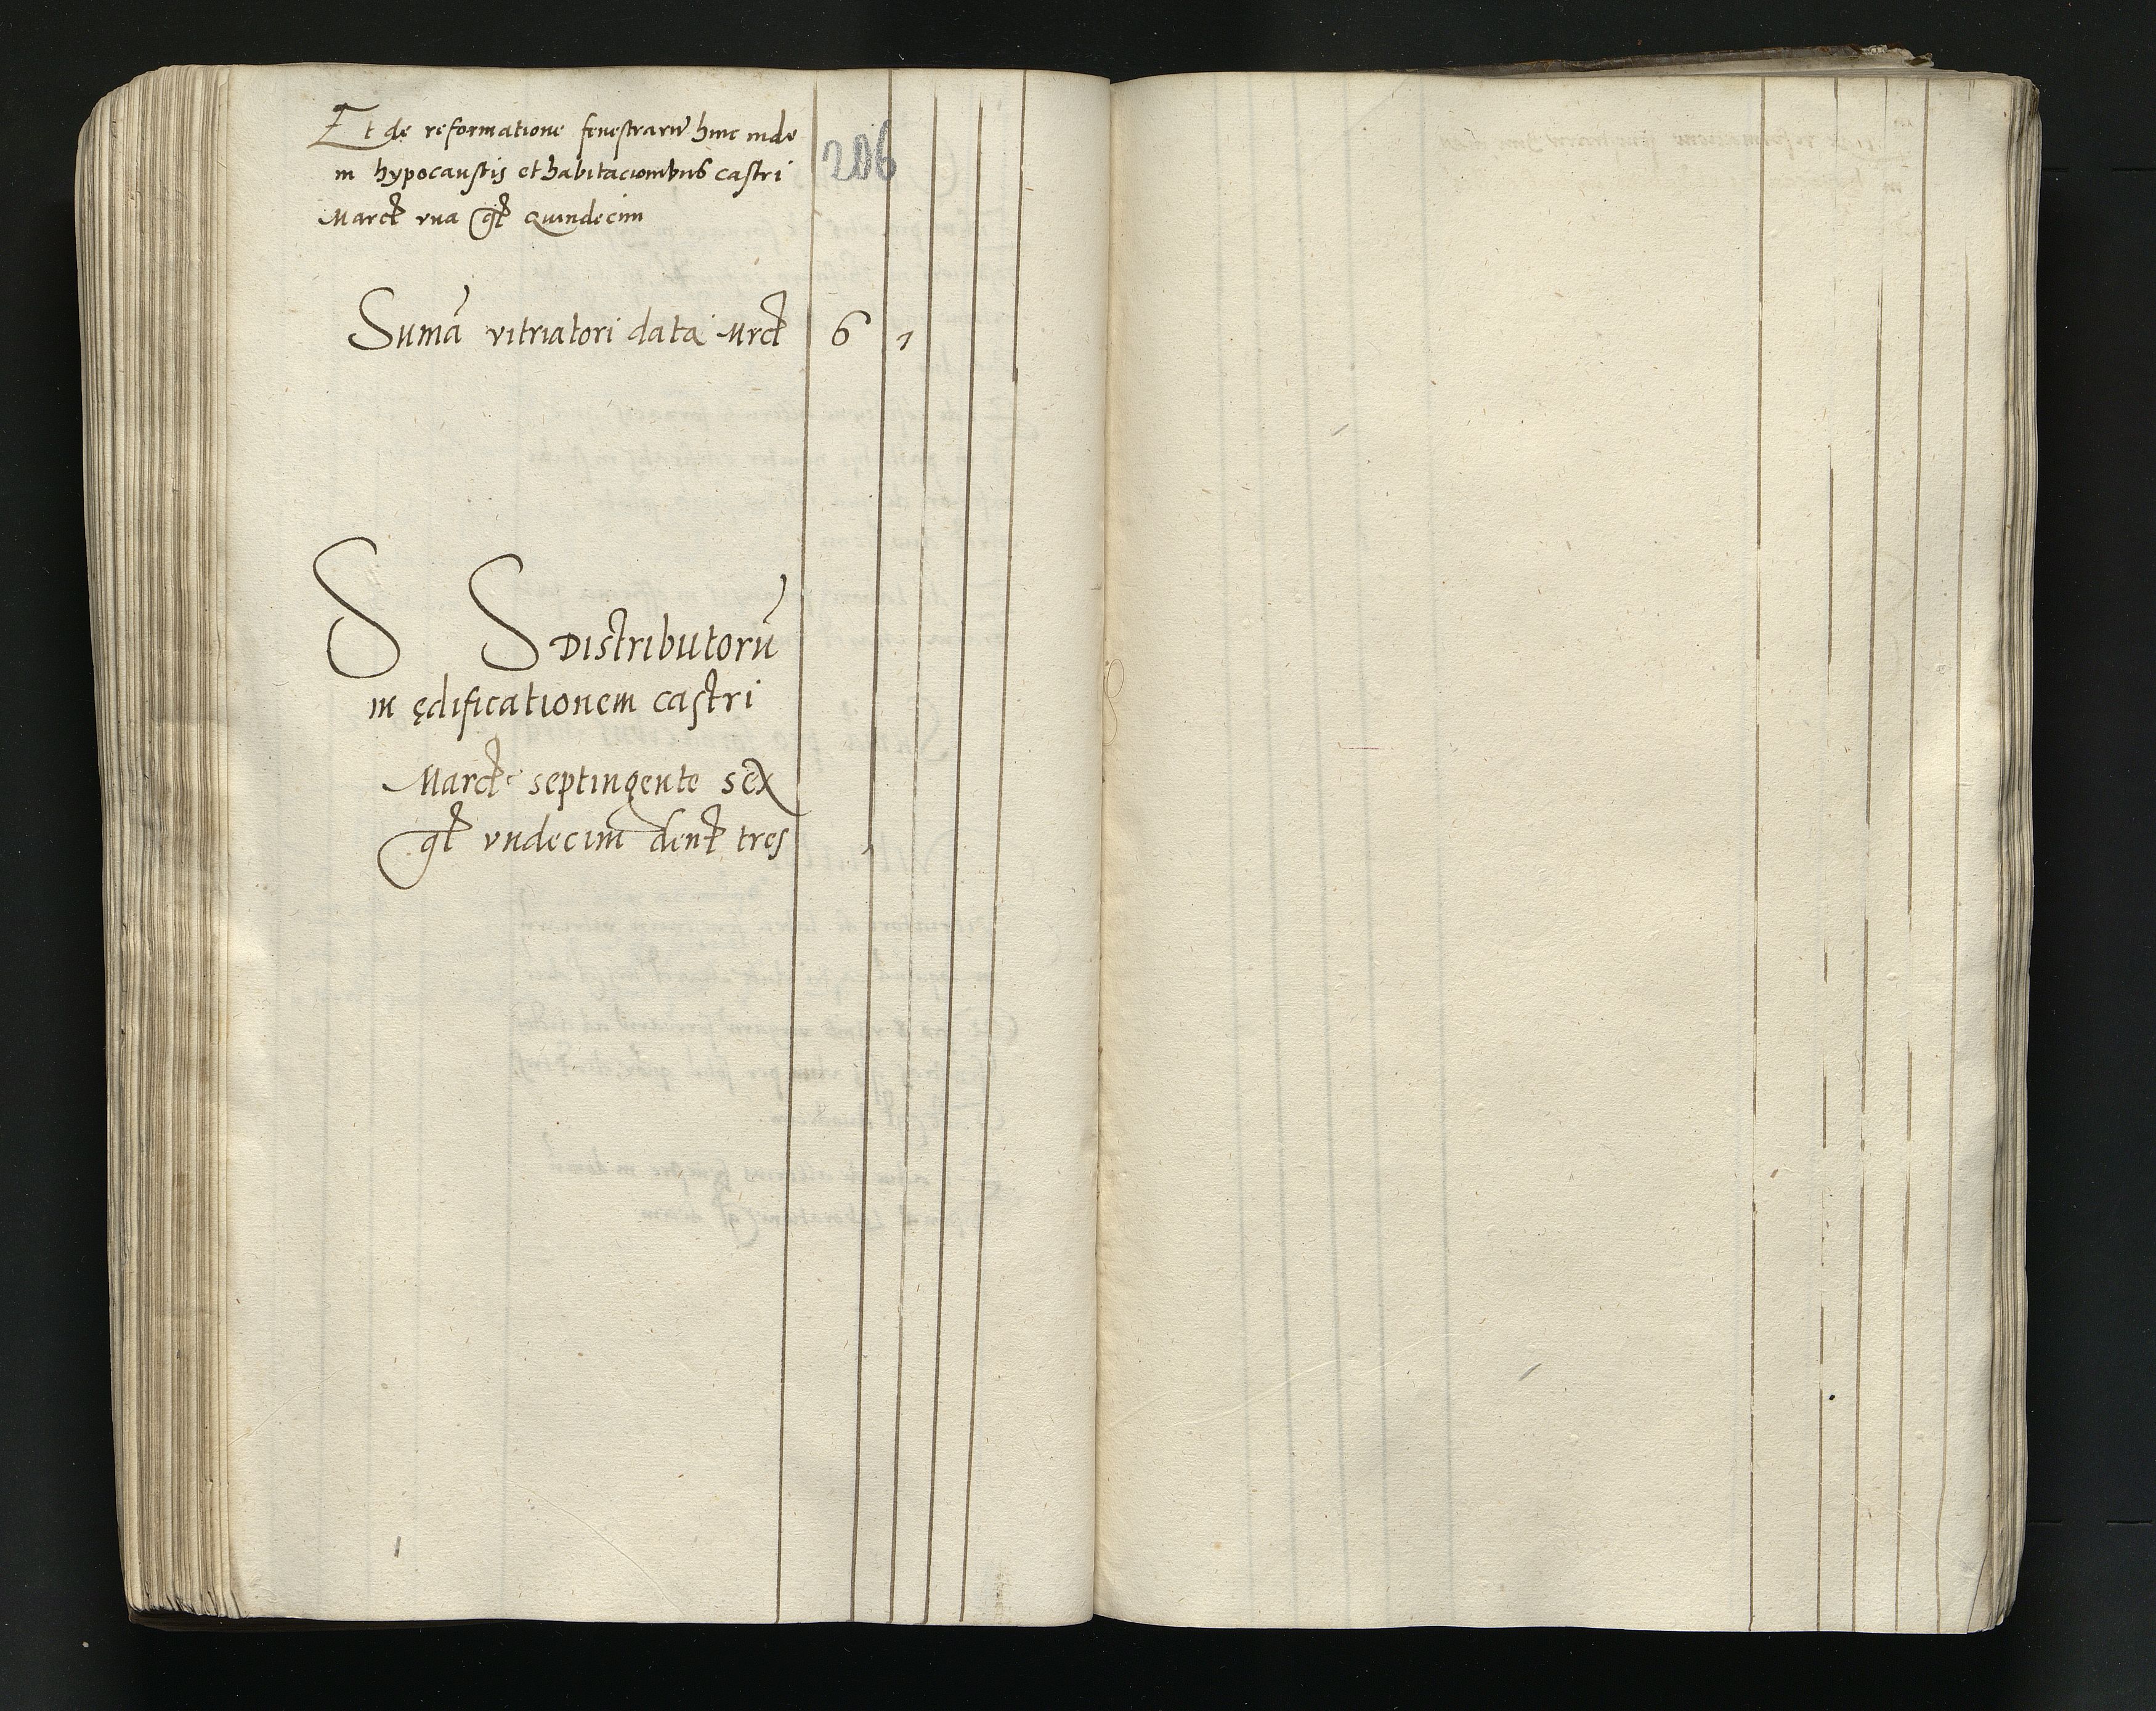 Et de reformatione fenestrarũ hinc inde
206
in hypocaustis et habitacionibus castri
Marcꝭ vna gꝭ Quindecim
Sumã vitriatori data Mrcꝭ 6 1
S S Distributorũ
in ędificationem castri
Marcꝭ septingente sex
gꝭ vndecim denꝭ tres